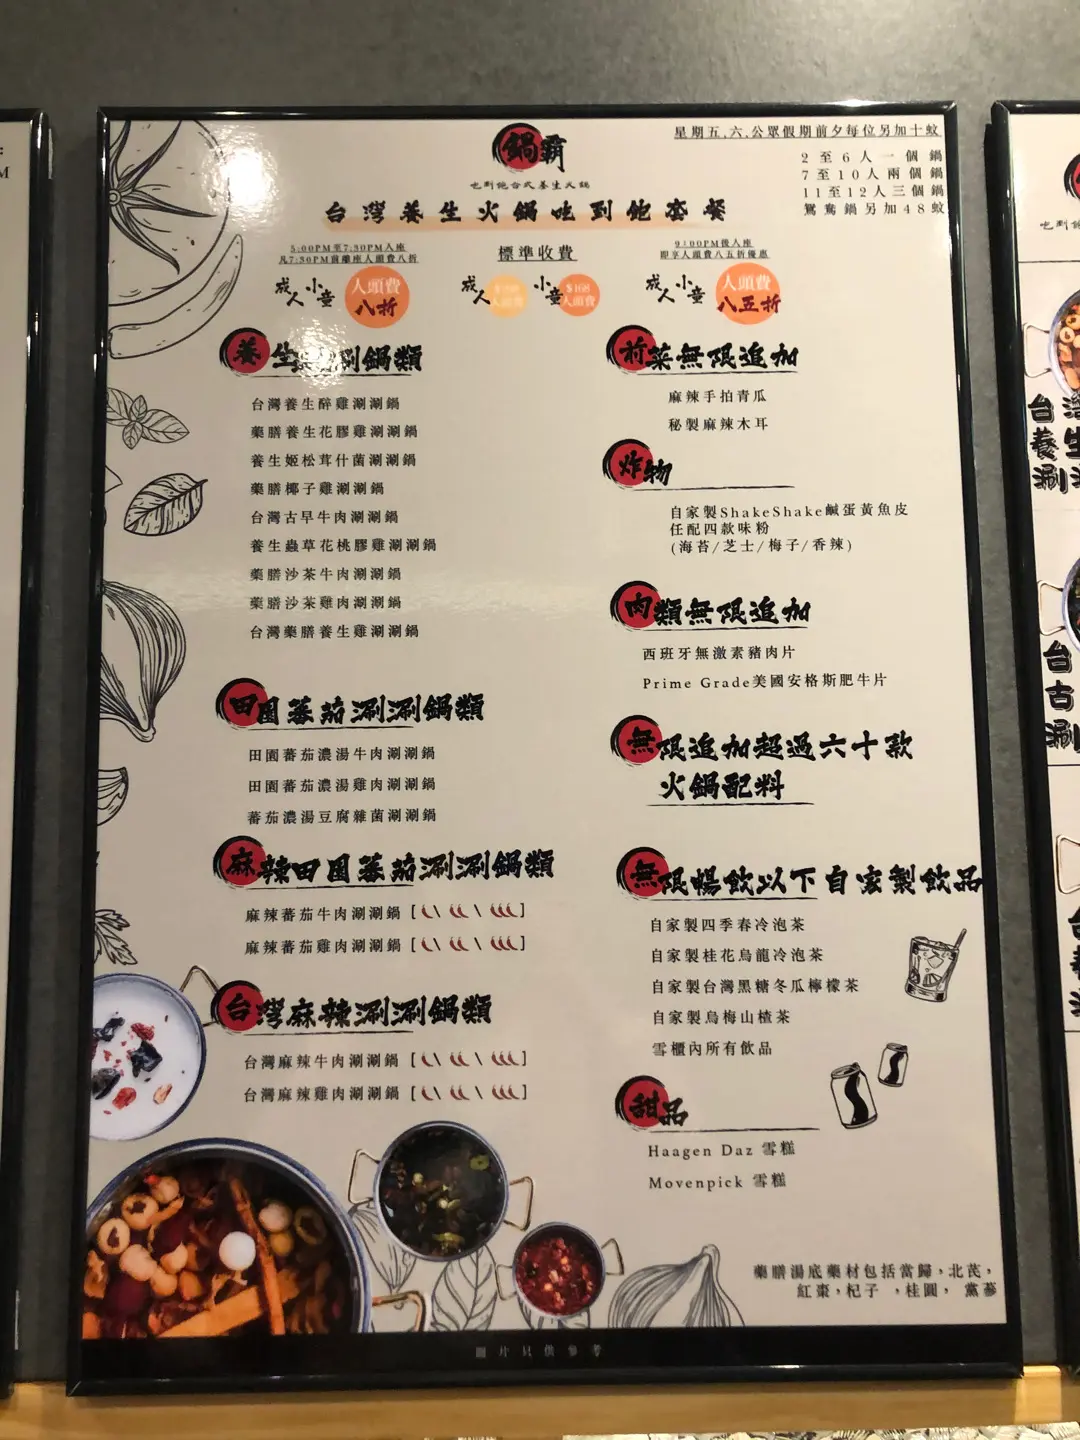 鍋霸
吃到飽台式養生火鍋
台灣養生火鍋吃到飽套餐
星期五,六,公眾假期前夕每位另加十蚊
2至6人一個鍋
7至10人兩個鍋
11至12人三個鍋
鴛鴦鍋另加48蚊
5:00PM至7:30PM入座
凡7:30PM前離座人頭費八折
成人 小童 人頭費 八折
標準收費
成人 人頭費 小童 $168 人頭費
9:00PM後入座
即享人頭費八五折優惠
成人 小童 人頭費 八五折
養生 涮鍋類
台灣養生醉雞涮涮鍋
藥膳養生花膠雞涮涮鍋
養生姬松茸什菌涮涮鍋
藥膳椰子雞涮涮鍋
台灣古早牛肉涮涮鍋
養生蟲草花桃膠雞涮涮鍋
藥膳沙茶牛肉涮涮鍋
藥膳沙茶雞肉涮涮鍋
台灣藥膳養生雞涮涮鍋
田園蕃茄涮涮鍋類
田園蕃茄濃湯牛肉涮涮鍋
田園蕃茄濃湯雞肉涮涮鍋
蕃茄濃湯豆腐雜菌涮涮鍋
麻辣田園蕃茄涮涮鍋類
麻辣蕃茄牛肉涮涮鍋 [ \ \ ]
麻辣蕃茄雞肉涮涮鍋 [ \ \ ]
台灣麻辣涮涮鍋類
台灣麻辣牛肉涮涮鍋 [ \ \ ]
台灣麻辣雞肉涮涮鍋 [ \ \ ]
前菜無限追加
麻辣手拍青瓜
秘製麻辣木耳
炸物
自家製ShakeShake鹹蛋黃魚皮
任配四款味粉
(海苔/芝士/梅子/香辣)
肉類無限追加
西班牙無激素豬肉片
Prime Grade美國安格斯肥牛片
無限追加超過六十款
火鍋配料
無限暢飲以下自家製飲品
自家製四季春冷泡茶
自家製桂花烏龍冷泡茶
自家製台灣黑糖冬瓜檸檬茶
自家製烏梅山楂茶
雪櫃內所有飲品
甜品
Haagen Daz 雪糕
Movenpick 雪糕
藥膳湯底藥材包括當歸,北芪,
紅棗,杞子 ,桂圓, 黨蔘
圖片只供參考